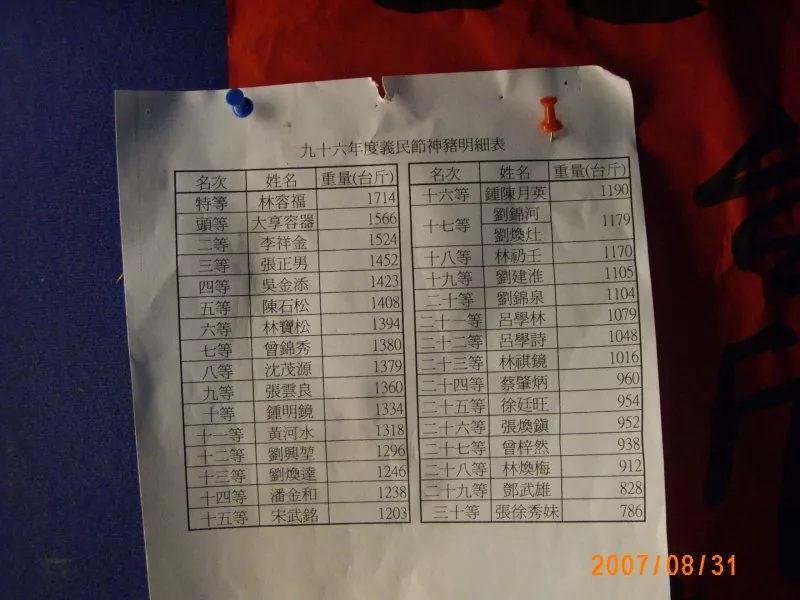 九十六年度義民節神豬明細表
名次 姓名 重量(台斤)
特等 林容福 1714
頭等 大享容器 1566
二等 李祥金 1524
三等 張正男 1452
四等 吳金添 1423
五等 陳石松 1408
六等 林寶松 1394
七等 曾錦秀 1380
八等 沈茂源 1379
九等 張雲良 1360
十等 鍾明鏡 1334
十一等 黃河水 1318
十二等 劉興堃 1296
十三等 劉煥達 1246
十四等 潘金和 1238
十五等 宋武銘 1203
名次 姓名 重量(台斤)
十六等 鍾陳月英 1190
十七等 劉錦河 1179
劉煥灶
十八等 林礽壬 1170
十九等 劉建淮 1105
二十等 劉錦泉 1104
二十一等 呂學林 1079
二十二等 呂學詩 1048
二十三等 林祺鏡 1016
二十四等 蔡肇炳 960
二十五等 徐廷旺 954
二十六等 張煥鎭 952
二十七等 曾梓然 938
二十八等 林煥梅 912
二十九等 鄧武雄 828
三十等 張徐秀妹 786
2007/08/31